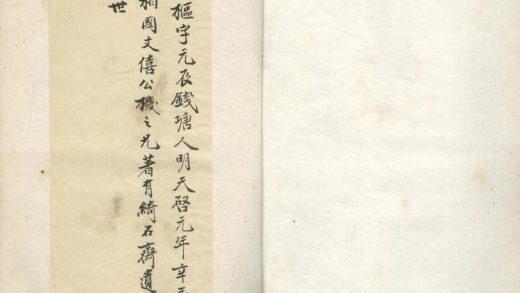 樞字元衣錢塘人明天啓元年辛
相國文僖公機之兄著有綺石齋遺
世